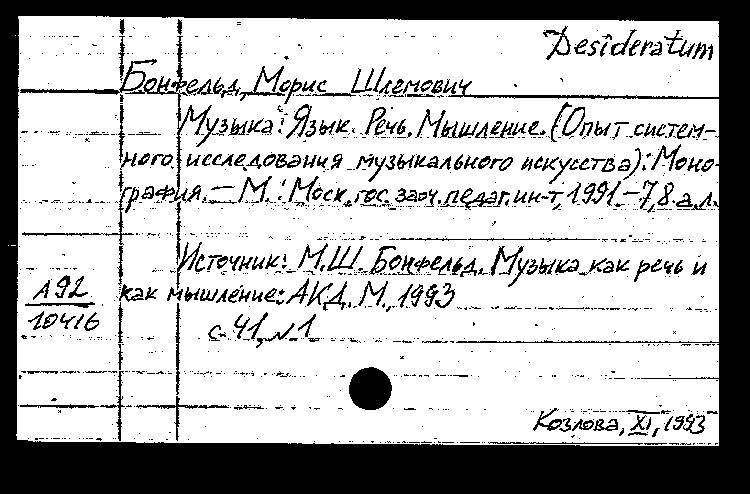 Desideratum
Бонфельд, Морис Шлемович
Музыка: Язык. Речь. Мышление. (Опыт систем-
ного исследования музыкального искусства): Моно-
графия. – М.: Моск. гос. заоч. педаг. ин-т, 1991. – 7,8 а.л.
Источник: М.Ш. Бонфельд. Музыка как речь и
как мышление: АКД. М., 1993
с. 41, № 1
А92
10416
Козлова, XI, 1993